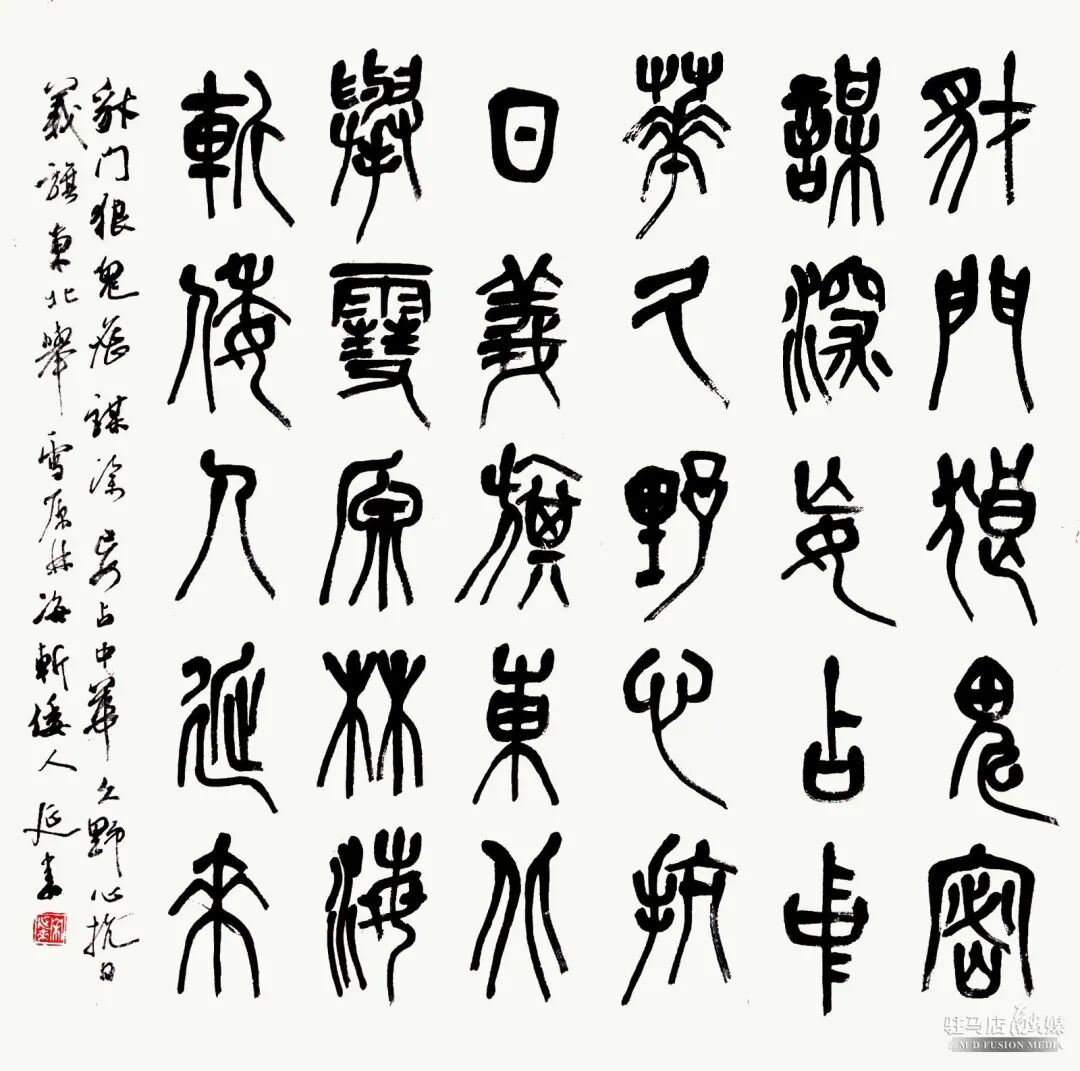 豺門狼鬼密
謀深妄占中
華久野心抗
日義旗東北
舉雪原林海
斬倭人延來
豺门狼鬼密謀深妄占中華久野心抗日
義旗東北舉雪原林海斬倭人延書
驻马店融媒
ZMD FUSION MEDIA